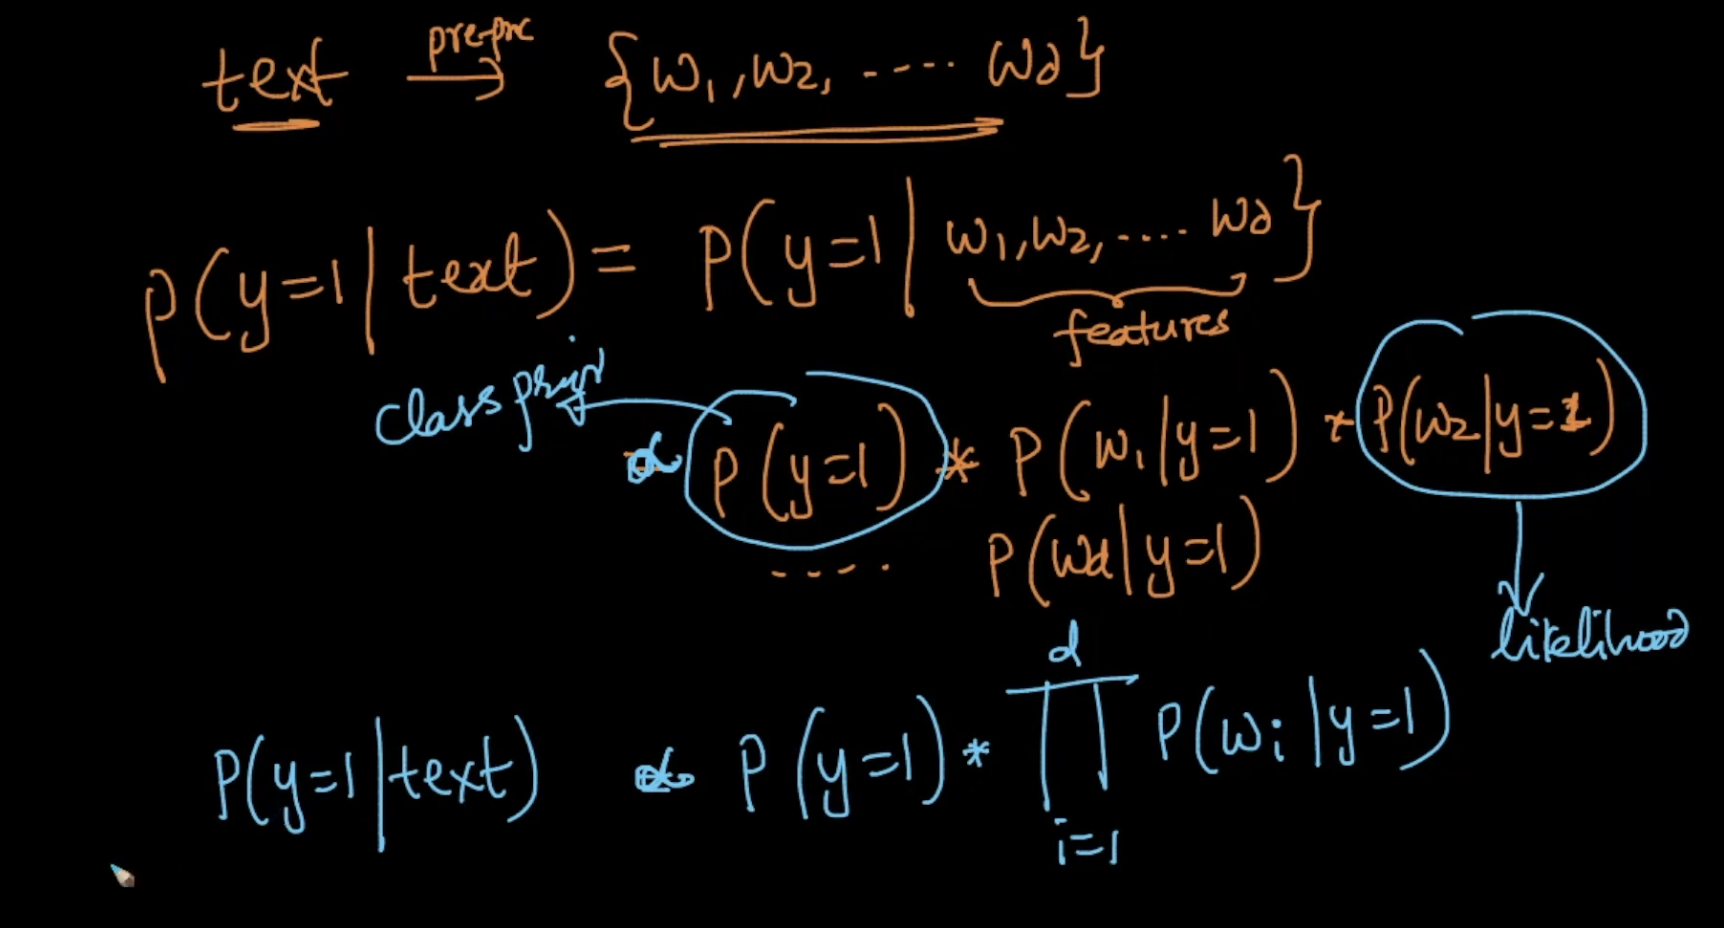 text pre-prc → {w₁, w₂, ..... wd}
P(y=1 | text) = P(y=1 | w₁, w₂, ..... wd}
features
class prior
∝ P(y=1) * P(w₁|y=1) * P(w₂|y=1)
..... P(wd|y=1)
likelihood
P(y=1|text) ∝ P(y=1) * ∏ᵈᵢ₌₁ P(wᵢ|y=1)